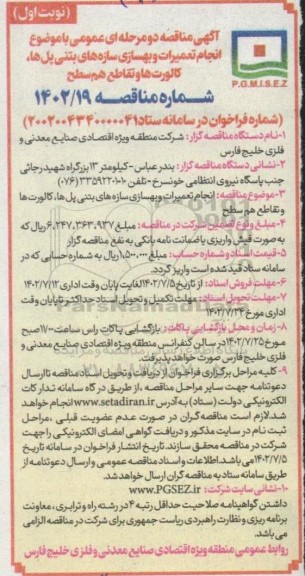 (نوبت اول)
P.G.M.I.S.E.Z
آگهی مناقصه دو مرحله ای عمومی با موضوع
انجام تعمیرات و بهسازی سازه های بتنی پل ها،
کالورت ها و تقاطع هم سطح
شماره مناقصه ۱۴۰۲/۱۹
(شماره فراخوان در سامانه ستاد ۲۰۰۲۰۰۴۳۴۰۰۰۰۰۴۱)
۱-نام دستگاه مناقصه گزار: شرکت منطقه ویژه اقتصادی صنایع معدنی و
فلزی خلیج فارس
۲-نشانی دستگاه مناقصه گزار: بندرعباس - کیلومتر ۱۳ بزرگراه شهید رجائی
جنب پاسگاه نیروی انتظامی خونسرخ - تلفن ۳۳۵۹۲۲۰۱۰ (۰۷۶)
۳-موضوع مناقصه: انجام تعمیرات و بهسازی سازه های بتنی پل ها، کالورت ها و
و تقاطع هم سطح
۴-مبلغ و نوع تضمین شرکت در مناقصه: مبلغ ۶,۲۴۷,۳۶۳,۹۳۷ ریال که
به صورت فیش واریزی یا ضمانت نامه بانکی به نفع مناقصه گزار
۵-قیمت اسناد و شماره حساب: مبلغ ۱,۵۰۰,۰۰۰ ریال به شماره حسابی که در
سامانه ستاد قید شده است واریز گردد.
۶-مهلت فروش اسناد: از تاریخ ۱۴۰۲/۷/۵ لغایت پایان وقت اداری ۱۴۰۲/۷/۱۲
۷-مهلت تحویل اسناد: مهلت تکمیل و تحویل اسناد حداکثر تا پایان وقت
اداری مورخ ۱۴۰۲/۷/۲۳
۸-زمان و محل بازگشایی پاکات: بازگشایی پاکات راس ساعت ۱۷:۰۰ صبح
مورخ ۱۴۰۲/۷/۲۵ در سالن کنفرانس منطقه ویژه اقتصادی صنایع معدنی و
فلزی خلیج فارس صورت خواهد پذیرفت.
۹- کلیه مراحل برگزاری فراخوان از دریافت و تحویل اسناد مناقصه تا ارسال
دعوتنامه جهت سایر مراحل مناقصه، از طریق درگاه سامانه تدارکات
الکترونیکی دولت (ستاد) به آدرس www.setadiran.ir انجام خواهد
شد. لازم است مناقصه گران در صورت عدم عضویت قبلی، مراحل
ثبت نام در سایت مذکور و دریافت گواهی امضای الکترونیکی را جهت
شرکت در مناقصه محقق سازند. تاریخ انتشار فراخوان در سامانه تاریخ
۱۴۰۲/۷/۵ می باشد. اطلاعات و اسناد مناقصه عمومی و ارسال دعوتنامه از
طریق سامانه ستاد به مناقصه گران ارسال خواهد شد.
۱۰-نشانی سایت شرکت: www.PGSEZ.ir
داشتن گواهینامه صلاحیت حداقل رتبه ۴ در رشته راه و ترابری، معاونت
برنامه ریزی و نظارت راهبردی ریاست جمهوری برای شرکت در مناقصه الزامی
می باشد.
روابط عمومی منطقه ویژه اقتصادی صنایع معدنی و فلزی خلیج فارس